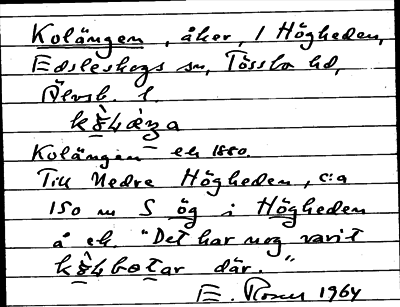 Kolängen, åker, 1 Högheden,
Edsleskogs sn, Tössbo hd,
Älvsb. l.
Kolängen ek 1880.
Till Nedre Högheden, c:a
150 m S ög i Högheden
å ek. "Det har nog varit
där."
E. 1964